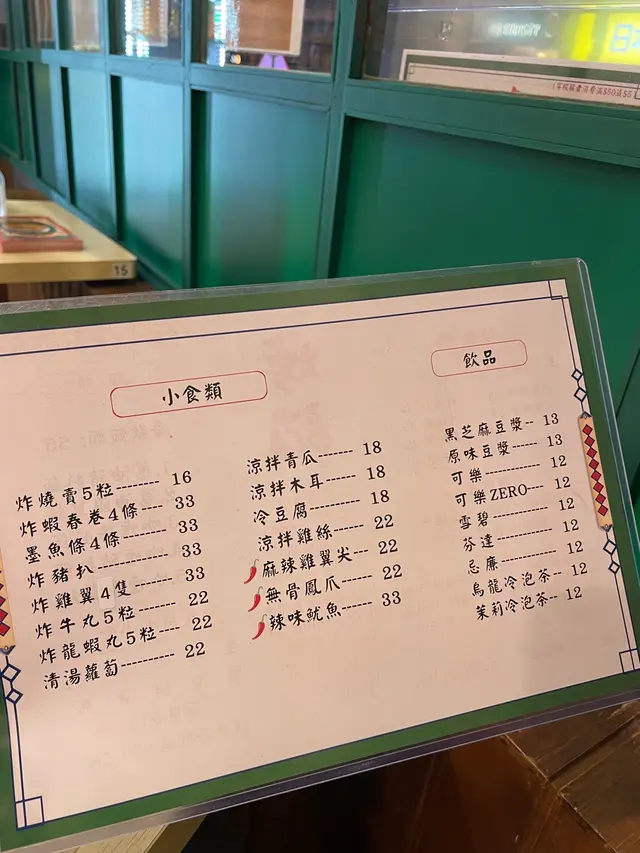 15
小食類
炸燒賣5粒------- 16
炸蝦春卷4條---- 33
墨魚條4條------- 33
炸豬扒----------- 33
炸雞翼4隻------- 33
炸牛丸5粒------- 22
炸龍蝦丸5粒---- 22
清湯蘿蔔--------- 22
涼拌青瓜------- 18
涼拌木耳------- 18
冷豆腐--------- 18
涼拌雞絲------- 22
麻辣雞翼尖--- 22
無骨鳳爪------- 22
辣味魷魚------- 33
飲品
黑芝麻豆漿-- 13
原味豆漿------ 13
可樂------------ 12
可樂ZERO--- 12
雪碧------------ 12
芬達------------ 12
忌廉------------ 12
烏龍冷泡茶-- 12
茉莉冷泡茶-- 12